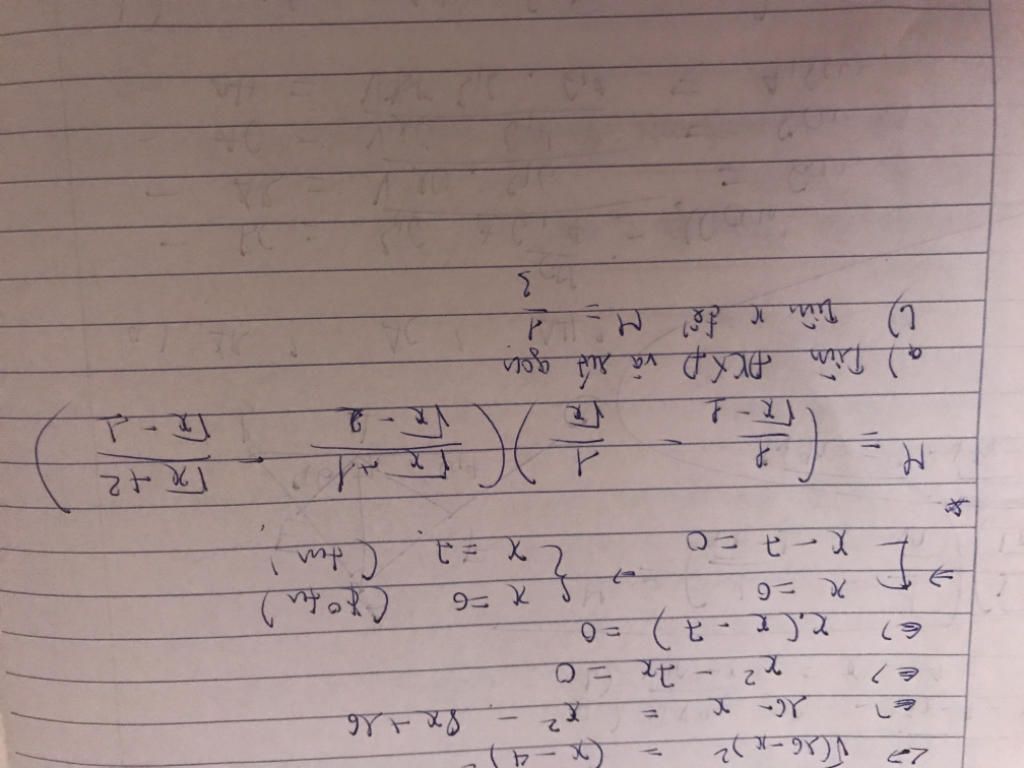 <=> √(16-x)² = (x - 4)²
<=> 16 - x = x² - 8x + 16
<=> x² - 7x = 0
<=> x.(x - 7) = 0
=> [ x = 0 -> { x = 0 (koTM)
[ x - 7 = 0 { x = 7 (TM)
M = ( 1/(√x - 1) - 1/√x ) ( (√x + 1)/(√x - 2) - (√x + 2)/(√x - 1) )
a) Tìm ĐKXĐ và rút gọn
b) Tìm x để M = 1/3